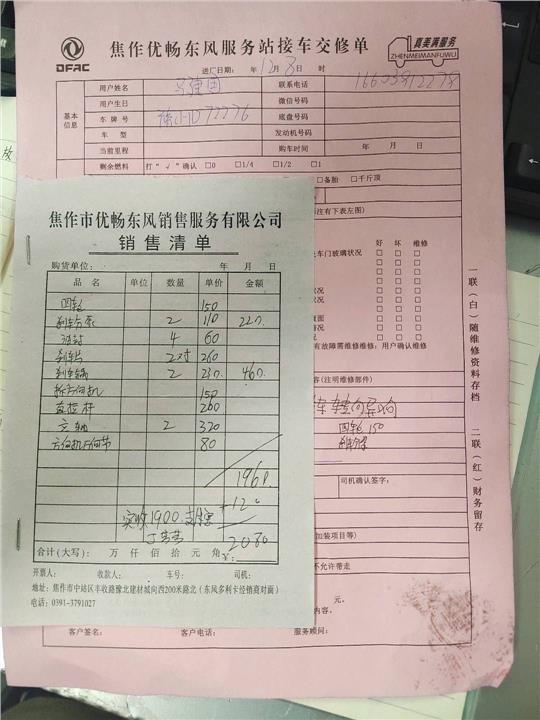 DFAC
焦作优畅东风服务站接车交修单
真美满服务
ZHENMEIMANFUWU
进厂日期： 年 12月 8日 时
基本信息
用户姓名 联系电话 16603912278
用户生日 微信号码
车牌号 底盘号码
车型 发动机号码
当前里程 购车时间 年 月 日
剩余燃料 打"√"确认 □0 □1/4 □1/2 □1
□备胎 □千斤顶
注有下表左图)
好 坏 维修
车门玻璃状况
状况
状况
有故障需维修维修：用户确认维修
容(注明维修部件)
四轮 150
刹车分泵
司机确认签字：
加装项目等)
不允许带走
元。
内容。
客户签名： 客户电话： 服务顾问：
一联（白）随维修资料存档 二联（红）财务留存
焦作市优畅东风销售服务有限公司
销售清单
购货单位： 年 月 日
品名 单位 数量 单价 金额
四轮 150
刹车分泵 2 110 220.
油封 4 60
刹车片 2对 260
刹车锅 2 230. 460.
拆方向机 150
直拉杆 260
2 320
方向机万向节 80
1960.
+120
实收1900.
2080
合计(大写)： 万 仟 佰 拾 元 角 ¥：
开票人： 收款人： 车号： 司机：
地址：焦作市中站区丰收路豫北建材城向西200米路北（东风多利卡经销商对面）
电话：0391-3791027